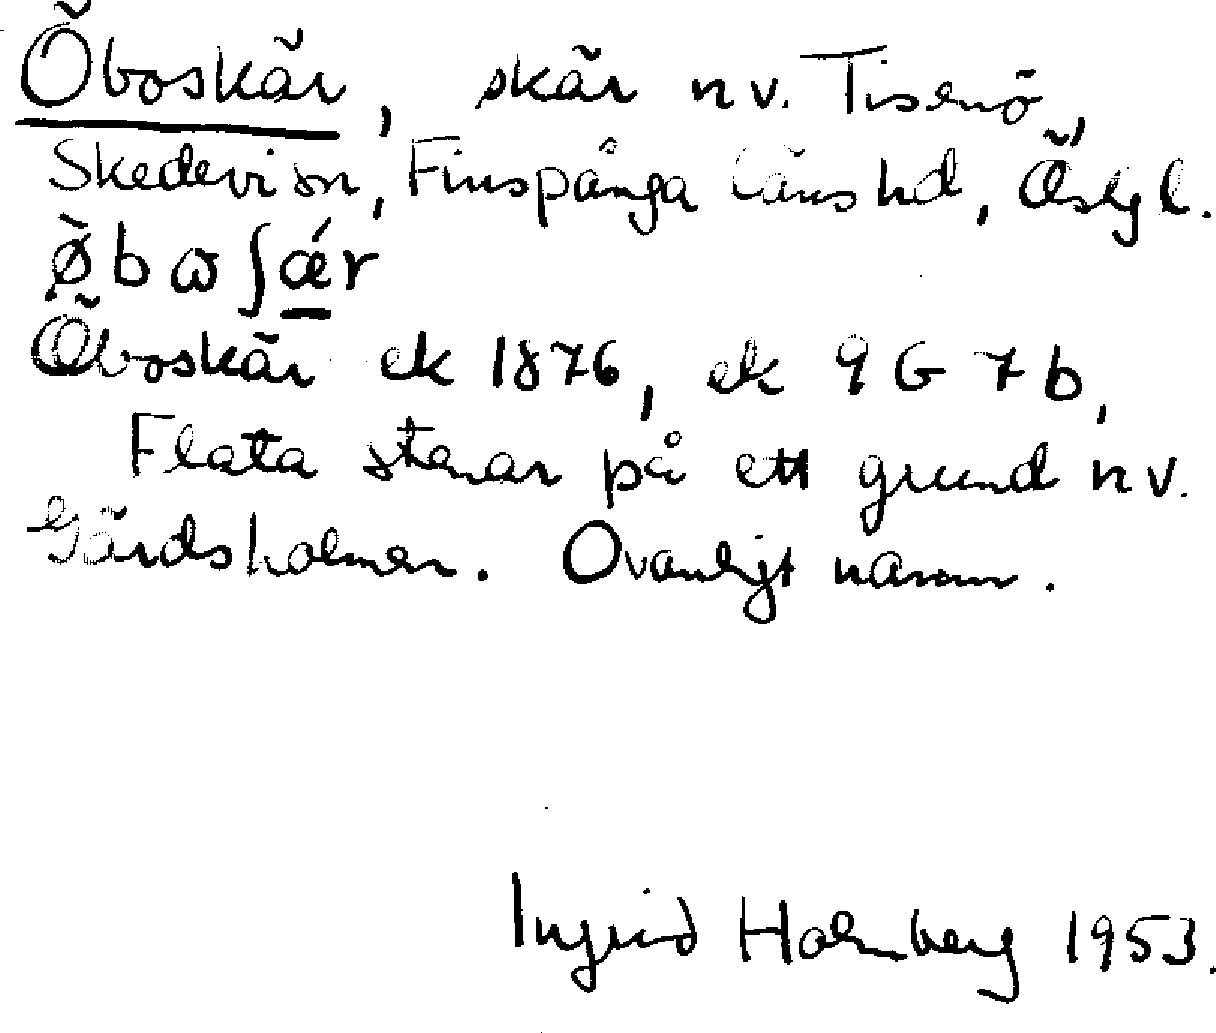 Öboskär, skär n v. Tisenö,
Skedevi sn, Finspånga läns hd, Östgl.
ø̀bɷʃǽr
Öboskär ek 1876, ek 9 G 7 b,
Flata stenar på ett grund n v.
Gärdsholmen. Ovanligt namn.
Ingrid Holmberg 1953.